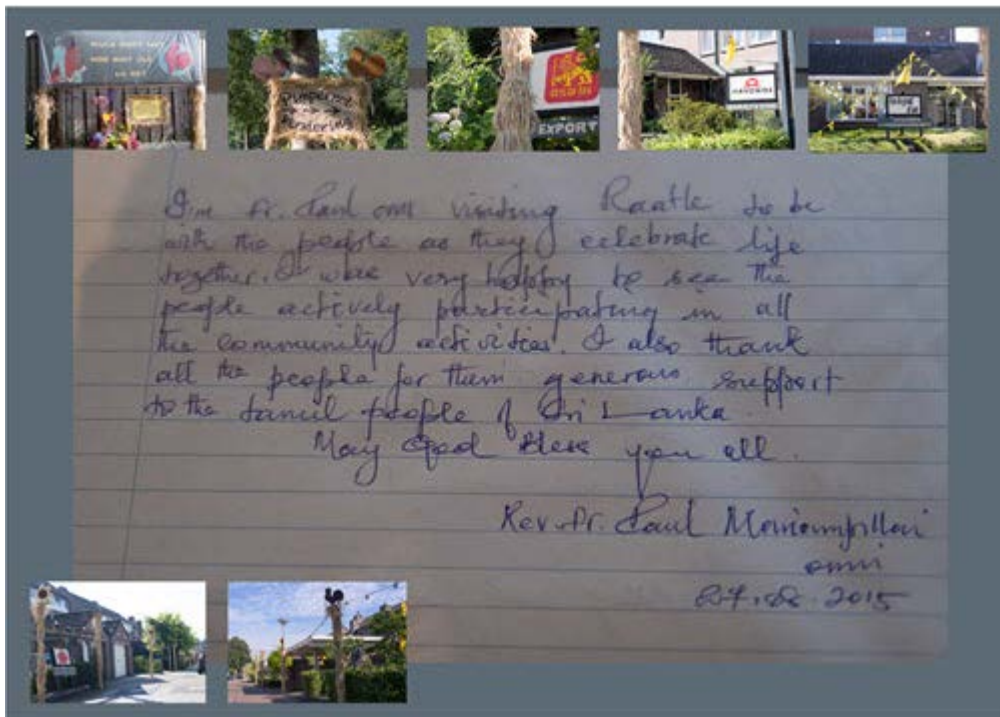 EXPORT
I'm Fr. Paul omi visiting Raalte to be
with the people as they celebrate life
together. I was very happy to see the
people actively participating in all
the community activities. I also thank
all the people for them generous support
to the tamil people of Sri Lanka.
May God Bless you all.
Rev. Fr. Paul
omi
2015